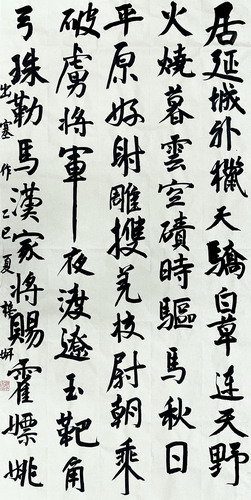 居延城外獵天驕白草連天野
火燒暮雲空磧時驅馬秋日
平原好射雕護羌校尉朝乘
破虜將軍夜渡遼玉靶角
弓珠勒馬漢家將賜霍嫖姚
出塞作乙巳夏